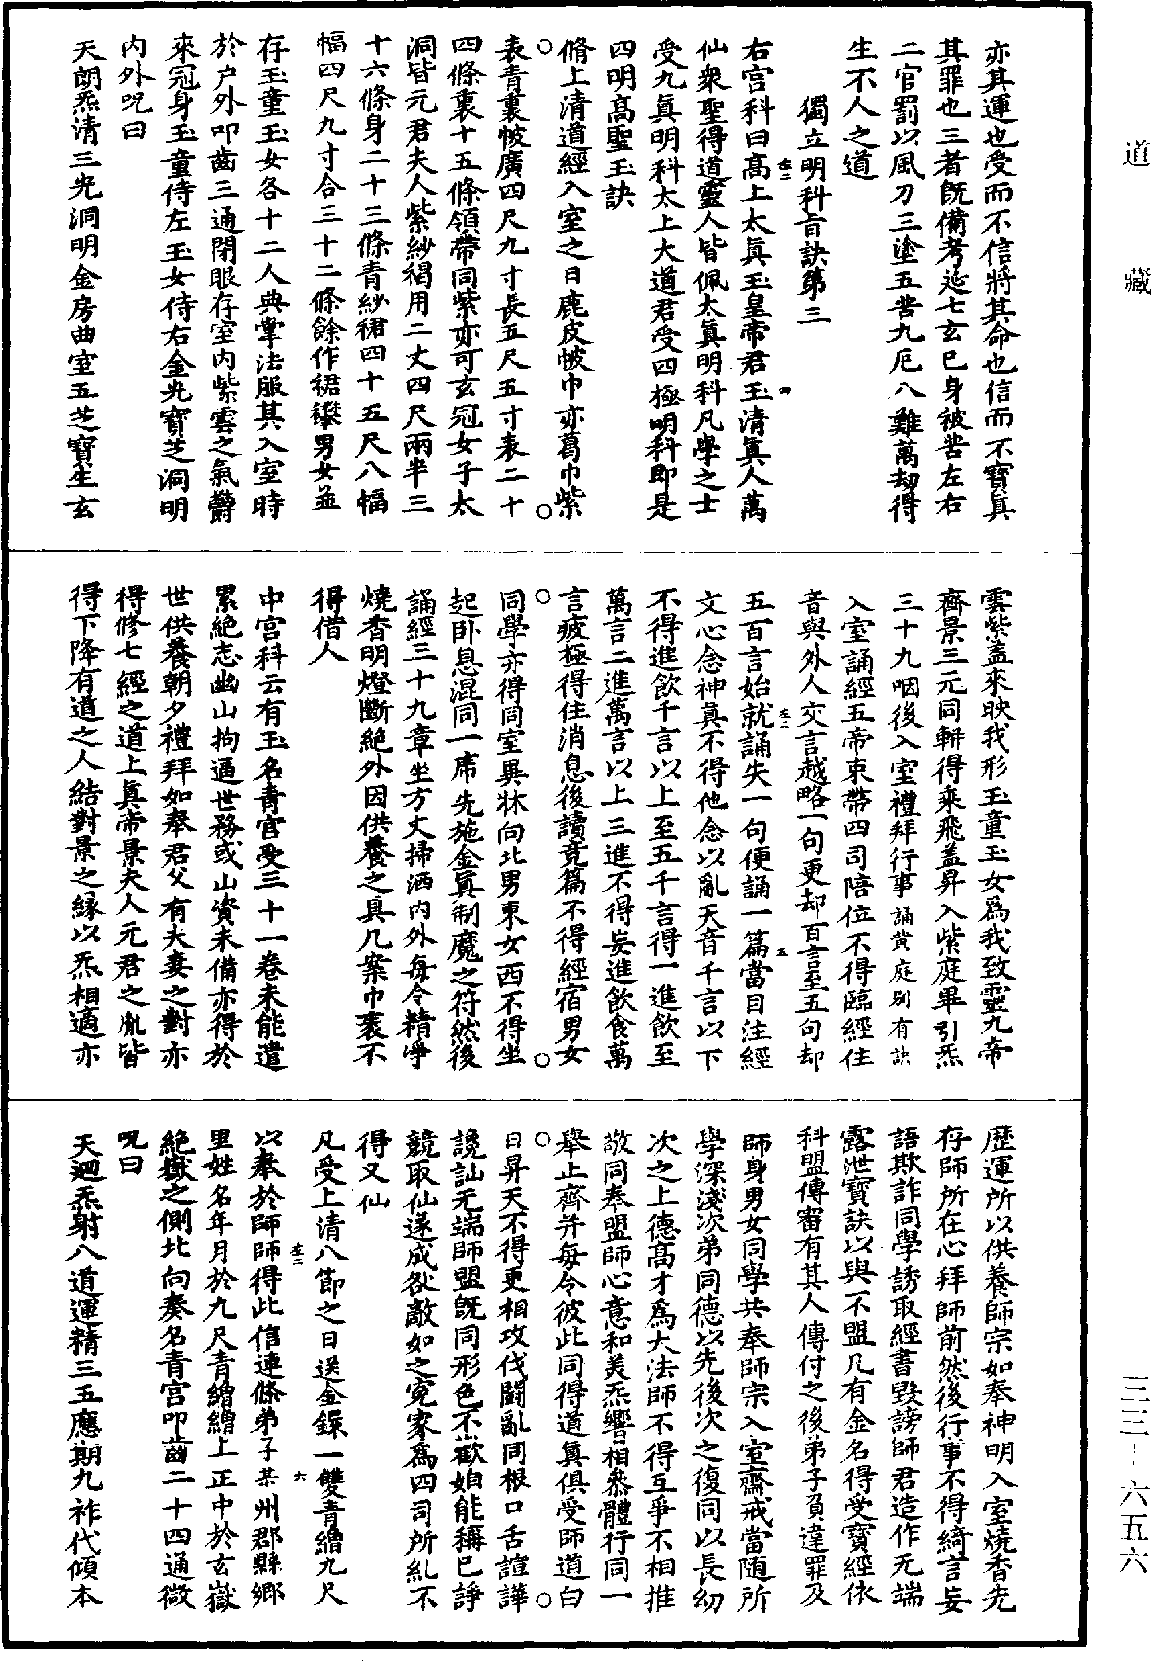 道藏
三三—六五六
亦其運也受而不信將其命也信而不寶真
其罪也三者既備考延七玄已身被苦左右
二官罰以風刀三塗五苦九厄八難萬劫得
生不人之道
獨立明科旨訣第三
右宮科曰高上太真玉皇帝君玉清真人萬
仙衆聖得道靈人皆佩太真明科凡學之士
受九真明科太上大道君受四極明科即是
四明高聖玉訣
脩上清道經入室之日鹿皮帔巾亦葛巾紫
表青裏帔廣四尺九寸長五尺五寸表二十
四條裏十五條領帶同紫亦可玄冠女子太
洞皆元君夫人紫紗褐用二丈四尺兩半三
十六條身二十三條青紗裙四十五尺八幅
幅四尺九寸合三十二條餘作裙攀男女並
存玉童玉女各十二人典掌法服其入室時
於戶外叩齒三通閉眼存室內紫雲之氣鬱
來冠身玉童侍左玉女侍右金光寶芝洞明
內外呪曰
天朗炁清三光洞明金房曲室五芝寶生玄
雲紫蓋來映我形玉童玉女爲我致靈九帝
齊景三元同軿得乘飛蓋昇入紫庭畢引炁
三十九咽後入室禮拜行事誦黄庭别有訣
入室誦經五帝束帶四司陪位不得臨經住
音與外人交言越略一句更却百言至五句却
五百言始就誦失一句便誦一篇當目注經
文心念神真不得他念以亂天音千言以下
不得進飲千言以上至五千言得一進飲至
萬言二進萬言以上三進不得妄進飲食萬
言疲極得住消息後讀竟篇不得經宿男女
同學亦得同室異牀向北男東女西不得坐
起卧息混同一席先施金真制魔之符然後
誦經三十九章坐方丈掃洒內外每令精淨
燒香明燈斷絕外因供養之具几案巾褁不
得借人
中宮科云有玉名青宮受三十一卷未能遣
累絕志幽山拘逼世務或山資未備亦得於
世供養朝夕禮拜如奉君父有夫妻之對亦
得修七經之道上真帝景夫人元君之胤皆
得下降有道之人結對景之緣以炁相適亦
歷運所以供養師宗如奉神明入室燒香先
存師所在心拜師前然後行事不得綺言妄
語欺詐同學誘取經書毀謗師君造作无端
露泄寶訣以與不盟凡有金名得受寶經依
科盟傳審有其人傳付之後弟子負違罪及
師身男女同學共奉師宗入室齋戒當随所
學深淺次弟同德以先後次之復同以長幼
次之上德高才爲大法師不得互爭不相推
敬同奉盟師心意和美炁響相叅體行同一
舉止齊并每令彼此同得道真俱受師道白
日昇天不得更相攻伐鬪亂同根口舌諠譁
讒訕无端師盟既同形色不歡姤能稱已諍
競取仙遂成敵如之寃家爲四司所糺不
得又仙
凡受上清八節之日送金鐶一雙青繒九尺
以奉於師師得此信連條弟子某州郡縣鄉
里姓名年月於九尺青繒繒上正中於玄嶽
絕嶽之側北向奏名青宮叩齒二十四通微
呪曰
天迴炁射八道運精三五應期九祚代傾本